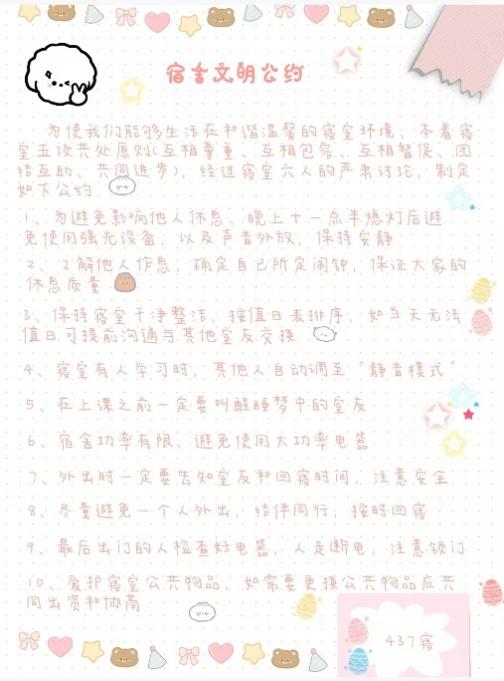 宿舍文明公约
为使我们能够生活在和谐温馨的寝室环境，本着寝
室五项共处原则（互相尊重、互相包容、互相督促、团
结互助、共同进步），经过寝室六人的严肃讨论，制定
如下公约
1、为避免影响他人休息、晚上十一点半熄灯后避
免使用强光设备，以及声音外放，保持安静
2、了解他人作息，确定自己所定闹钟，保证大家的
休息质量
3、保持寝室干净整洁，按值日表排序，如当天无法
值日可提前沟通与其他室友交换
4、寝室有人学习时，其他人自动调至“静音模式”
5、在上课之前一定要叫醒睡梦中的室友
6、宿舍功率有限、避免使用大功率电器
7、外出时一定要告知室友和回寝时间，注意安全
8、尽量避免一个人外出，结伴同行，按时回寝
9、最后出门的人检查好电器，人走断电，注意锁门
10、爱护寝室公共物品，如需要更换公共物品应共
同出资和协商
437寝